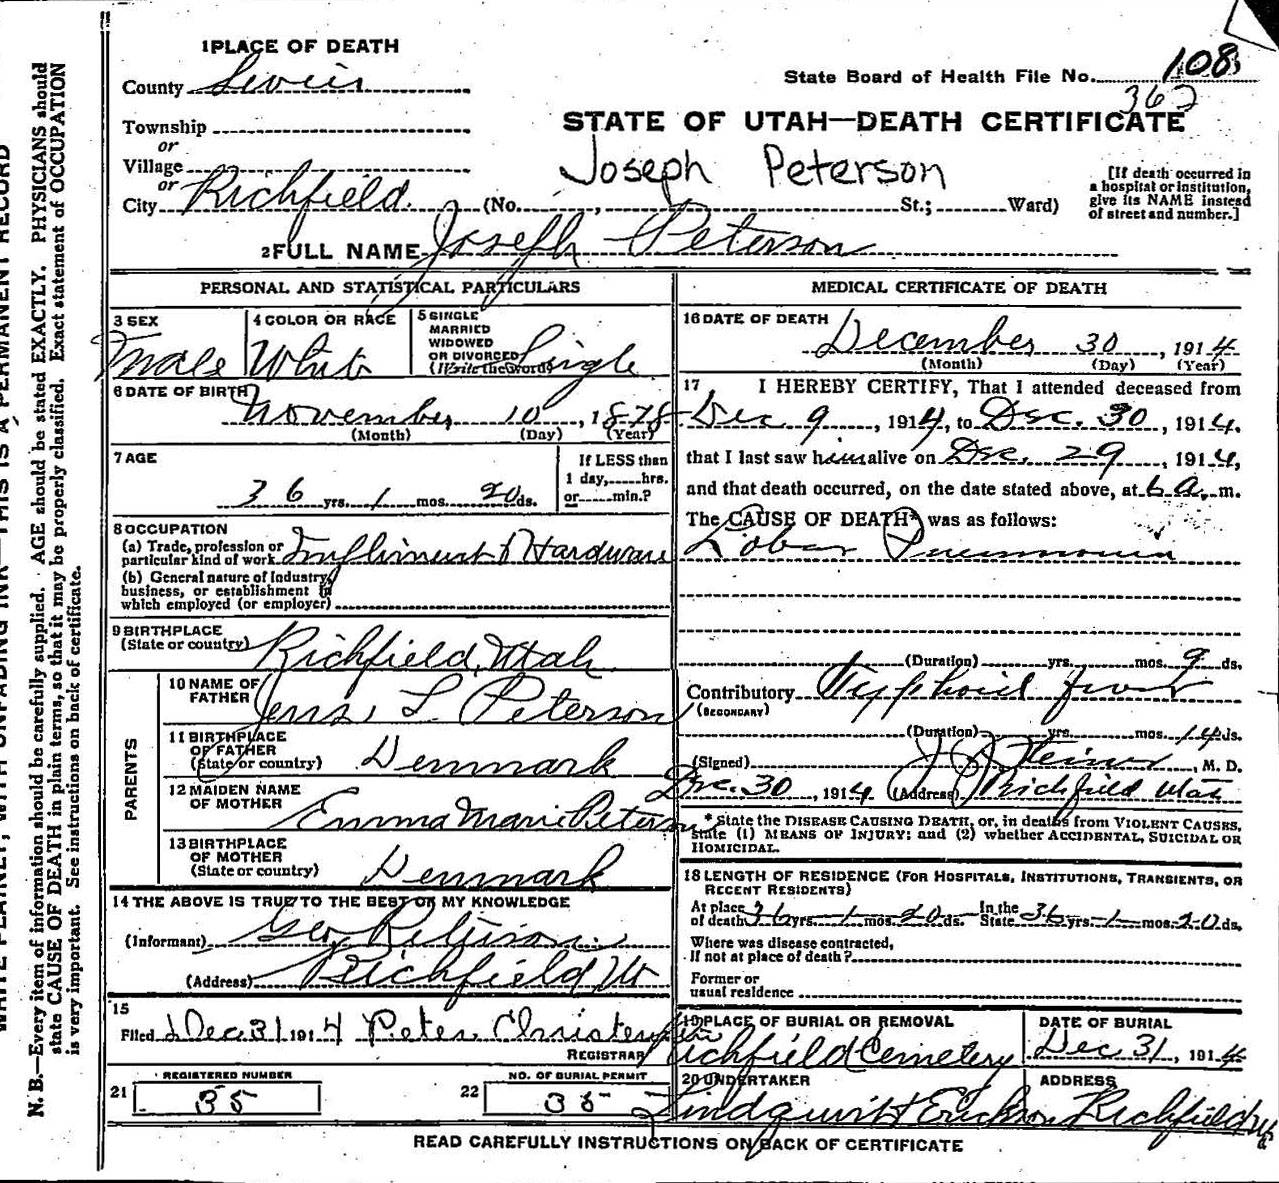 WRITE PLAINLY, WITH UNFADING INK—THIS IS A PERMANENT RECORD
N. B.—Every item of information should be carefully supplied. AGE should be stated EXACTLY. PHYSICIANS should
state CAUSE OF DEATH in plain terms, so that it may be properly classified. Exact statement of OCCUPATION
is very important. See instructions on back of certificate.
1 PLACE OF DEATH
County Sevier
Township
or
Village
or
City Richfield. (No. , St.; Ward)
State Board of Health File No. 108
362
STATE OF UTAH—DEATH CERTIFICATE
Joseph Peterson
[If death occurred in
a hospital or institution,
give its NAME instead
of street and number.]
2 FULL NAME Joseph Peterson
PERSONAL AND STATISTICAL PARTICULARS
3 SEX
Male
4 COLOR OR RACE
White
5 SINGLE
MARRIED
WIDOWED
OR DIVORCED
(Write the word) Single
6 DATE OF BIRTH
November 10, 1878
(Month) (Day) (Year)
7 AGE
36 yrs. 1 mos. 20 ds.
If LESS than
1 day, hrs.
or min.?
8 OCCUPATION
(a) Trade, profession or
particular kind of work Impliment & Hardware
(b) General nature of Industry,
business, or establishment in
which employed (or employer)
9 BIRTHPLACE
(State or country) Richfield, Utah
PARENTS
10 NAME OF
FATHER Jens L. Peterson
11 BIRTHPLACE
OF FATHER
(State or country) Denmark
12 MAIDEN NAME
OF MOTHER Emma Marie Peterson
13 BIRTHPLACE
OF MOTHER
(State or country) Denmark
14 THE ABOVE IS TRUE TO THE BEST OF MY KNOWLEDGE
(Informant) Geo. Peterson
(Address) Richfield Ut
15
Filed Dec 31 1914 Peter Christensen
REGISTRAR
21 REGISTERED NUMBER
35
22 NO. OF BURIAL PERMIT
35
MEDICAL CERTIFICATE OF DEATH
16 DATE OF DEATH
December 30, 1914
(Month) (Day) (Year)
17 I HEREBY CERTIFY, That I attended deceased from
Dec 9, 1914, to Dec. 30, 1914,
that I last saw him alive on Dec. 29, 1914,
and that death occurred, on the date stated above, at 6 a. m.
The CAUSE OF DEATH* was as follows:
Lobar Pneumonia
(Duration) yrs. mos. 9 ds.
Contributory Typhoid fever
(SECONDARY)
(Duration) yrs. mos. 14 ds.
(Signed) J J Steiner, M. D.
Dec. 30, 1914 (Address) Richfield Utah
* State the DISEASE CAUSING DEATH, or, in deaths from VIOLENT CAUSES,
state (1) MEANS OF INJURY; and (2) whether ACCIDENTAL, SUICIDAL OR
HOMICIDAL.
18 LENGTH OF RESIDENCE (FOR HOSPITALS, INSTITUTIONS, TRANSIENTS, OR
RECENT RESIDENTS)
At place
of death 36 yrs. 1 mos. 20 ds. In the
State 36 yrs. 1 mos. 20 ds.
Where was disease contracted,
If not at place of death?
Former or
usual residence
19 PLACE OF BURIAL OR REMOVAL
Richfield Cemetery
DATE OF BURIAL
Dec 31, 1914
20 UNDERTAKER
Lindquist & Erickson
ADDRESS
Richfield Ut
READ CAREFULLY INSTRUCTIONS ON BACK OF CERTIFICATE